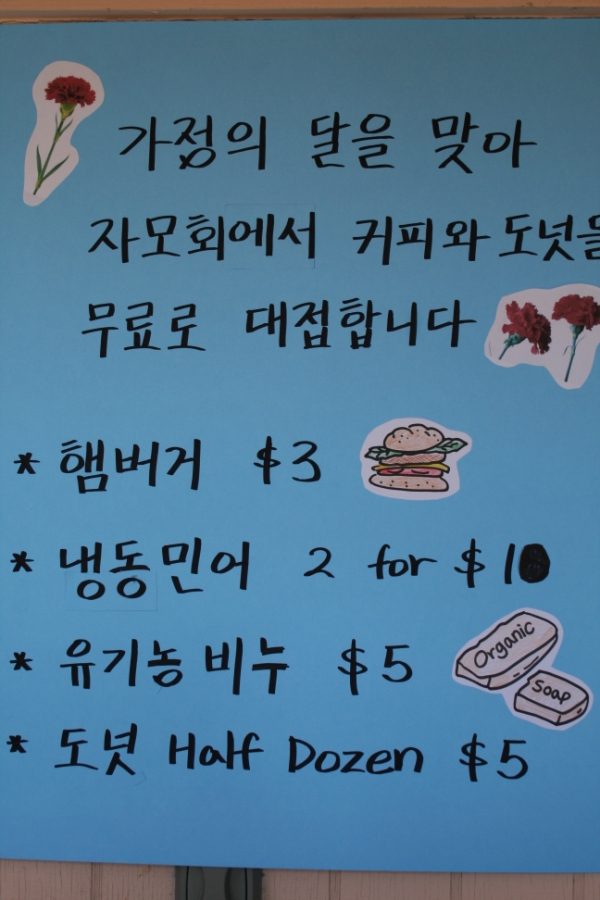 가정의 달을 맞아
자모회에서 커피와 도넛을
무료로 대접합니다
* 햄버거 $3
* 냉동민어 2 for $10
* 유기농 비누 $5
Organic
Soap
* 도넛 Half Dozen $5